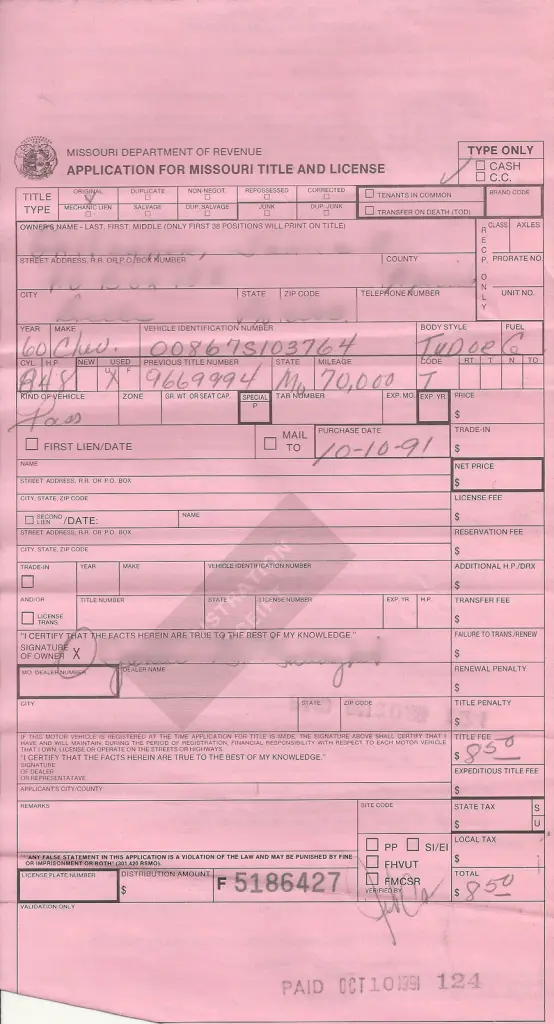 MISSOURI DEPARTMENT OF REVENUE
APPLICATION FOR MISSOURI TITLE AND LICENSE
TYPE ONLY
CASH
C.C.
TITLE TYPE
ORIGINAL DUPLICATE NON-NEGOT. REPOSSESSED CORRECTED
MECHANIC LIEN SALVAGE DUP. SALVAGE JUNK DUP. JUNK
TENANTS IN COMMON
TRANSFER ON DEATH (TOD)
BRAND CODE
OWNER'S NAME - LAST, FIRST, MIDDLE (ONLY FIRST 38 POSITIONS WILL PRINT ON TITLE)
RECP. ONLY
CLASS AXLES
STREET ADDRESS, R.R. OR P.O. BOX NUMBER COUNTY
PRORATE NO.
CITY STATE ZIP CODE TELEPHONE NUMBER
UNIT NO.
YEAR MAKE VEHICLE IDENTIFICATION NUMBER BODY STYLE FUEL
60 Chev. 00867S103764 TuDoe G
CYL. H.P. NEW USED PREVIOUS TITLE NUMBER STATE MILEAGE CODE RT T N TO
848 X 9669994 Mo 70,000 T
KIND OF VEHICLE ZONE GR. WT. OR SEAT CAP. SPECIAL P TAB NUMBER EXP. MO. EXP. YR. PRICE
Pass
$
FIRST LIEN/DATE
MAIL TO
PURCHASE DATE
10-10-91
TRADE-IN
$
NAME
NET PRICE
$
STREET ADDRESS, R.R. OR P.O. BOX
CITY, STATE, ZIP CODE
LICENSE FEE
$
SECOND LIEN /DATE: NAME
STREET ADDRESS, R.R. OR P.O. BOX
RESERVATION FEE
$
CITY, STATE, ZIP CODE
TRADE-IN YEAR MAKE VEHICLE IDENTIFICATION NUMBER
ADDITIONAL H.P./DRX
$
AND/OR TITLE NUMBER STATE LICENSE NUMBER EXP. YR. H.P.
TRANSFER FEE
$
LICENSE TRANS.
"I CERTIFY THAT THE FACTS HEREIN ARE TRUE TO THE BEST OF MY KNOWLEDGE."
FAILURE TO TRANS/RENEW
$
SIGNATURE OF OWNER X
MO. DEALER NUMBER DEALER NAME
RENEWAL PENALTY
$
CITY STATE ZIP CODE
TITLE PENALTY
$
IF THIS MOTOR VEHICLE IS REGISTERED AT THE TIME APPLICATION FOR TITLE IS MADE, THE SIGNATURE ABOVE SHALL CERTIFY THAT I
HAVE AND WILL MAINTAIN, DURING THE PERIOD OF REGISTRATION, FINANCIAL RESPONSIBILITY WITH RESPECT TO EACH MOTOR VEHICLE
THAT I OWN, LICENSE OR OPERATE ON THE STREETS OR HIGHWAYS.
"I CERTIFY THAT THE FACTS HEREIN ARE TRUE TO THE BEST OF MY KNOWLEDGE."
SIGNATURE
OF DEALER
OR REPRESENTATIVE
TITLE FEE
$ 8.50
EXPEDITIOUS TITLE FEE
$
APPLICANT'S CITY/COUNTY
REMARKS
SITE CODE
STATE TAX
$
S
U
PP SI/EI
FHVUT
FMCSR
VERIFIED BY
LOCAL TAX
$
"ANY FALSE STATEMENT IN THIS APPLICATION IS A VIOLATION OF THE LAW AND MAY BE PUNISHED BY FINE
OR IMPRISONMENT OR BOTH! (301.420 RSMO).
LICENSE PLATE NUMBER DISTRIBUTION AMOUNT
$
F 5186427
TOTAL
$ 8.50
VALIDATION ONLY
PAID OCT 10 1991 124